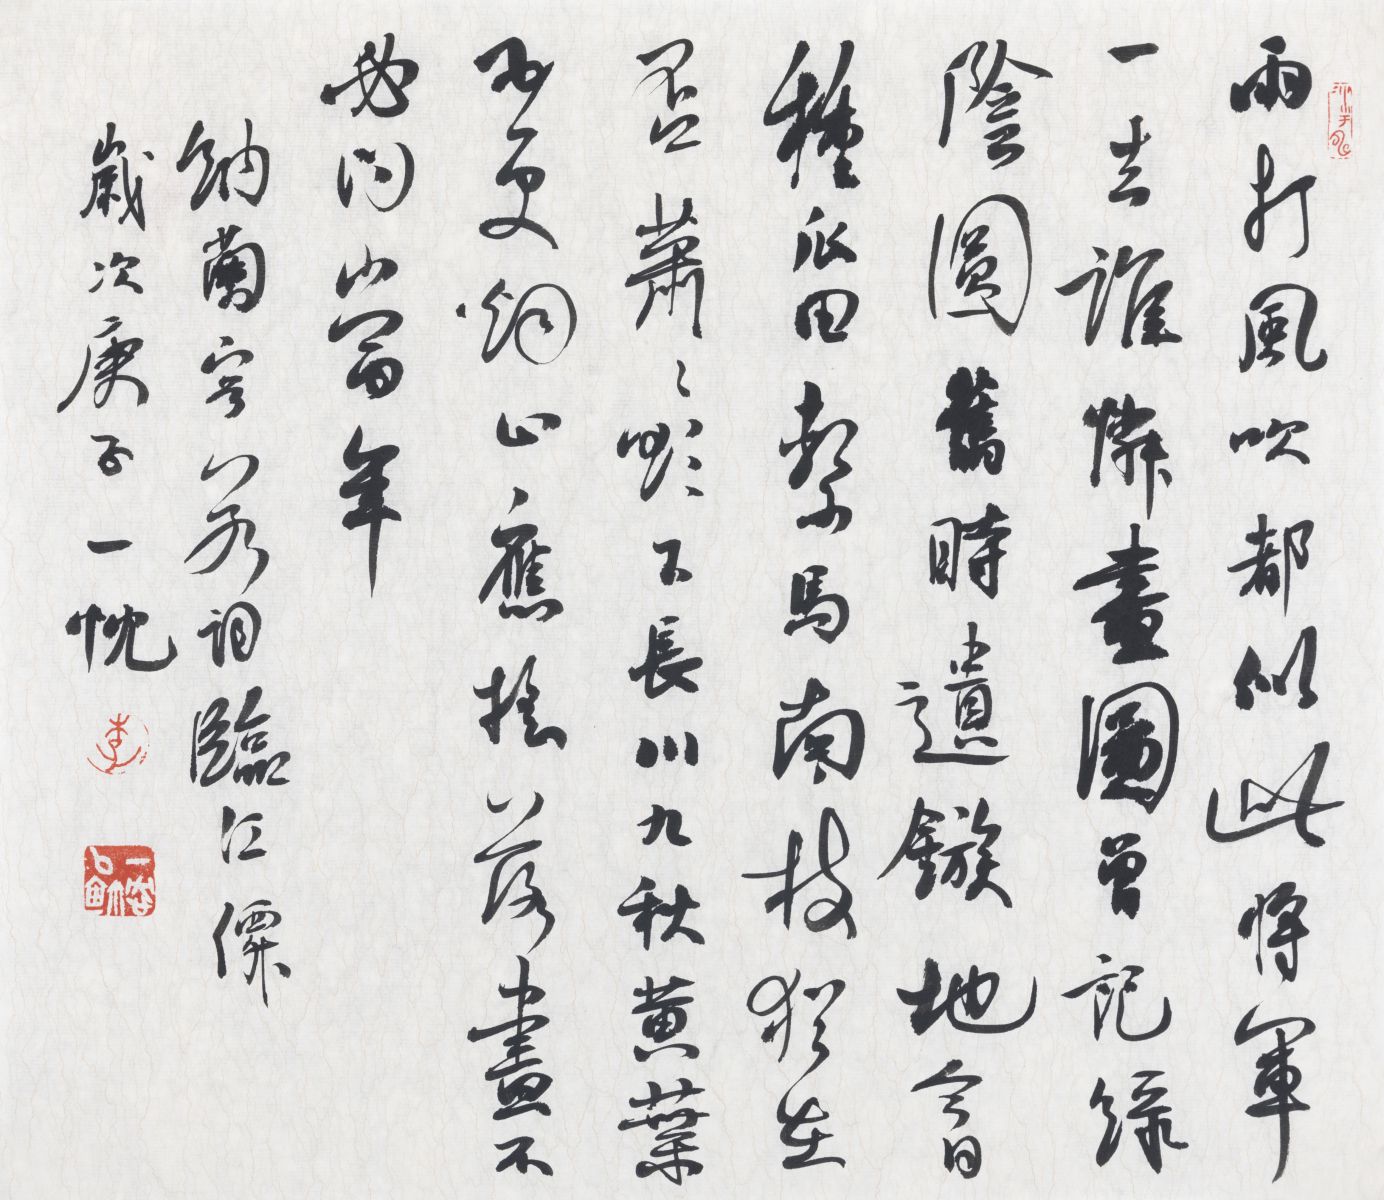 雨打風吹都似此將軍
一去誰憐畫圖曾記綠
陰圓舊時遺鏃地今日
種瓜田繫馬南枝猶在
否蕭々欲下長川九秋黄葉
五更烟止應搖落盡不
必問當年
納蘭容若詞臨江僊
歲次庚子一忱
李